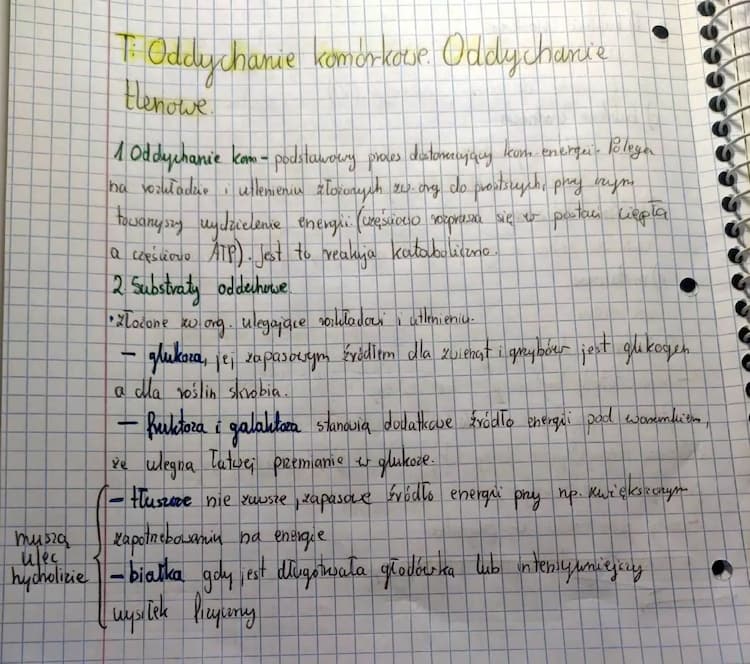 T: Oddychanie komórkowe. Oddychanie
tlenowe.
1 Oddychanie kom - podstawowy proces dostarczający kom. energii. Polega
na rozkładzie i utlenieniu złożonych zw. org do prostszych, przy czym
towarzyszy wydzielenie energii (częściowo rozprasza się w postaci ciepła
a częściowo ATP). Jest to reakcja kataboliczna.
2 Substraty oddechowe.
• złożone zw org. ulegające rozkładowi i utlenieniu.
- glukoza, jej zapasowym źródłem dla zwierząt i grzybów jest glikogen
a dla roślin skrobia.
- fruktoza i galaktoza stanowią dodatkowe źródło energii pod warunkiem,
że ulegną łatwej przemianie w glukozę.
- tłuszcze nie zawsze, zapasowe źródło energii przy np. zwiększonym
zapotrzebowaniu na energię
- białka gdy jest długotrwała głodówka lub intensywniejszy
wysiłek fizyczny
muszą
ulec
hydrolizie